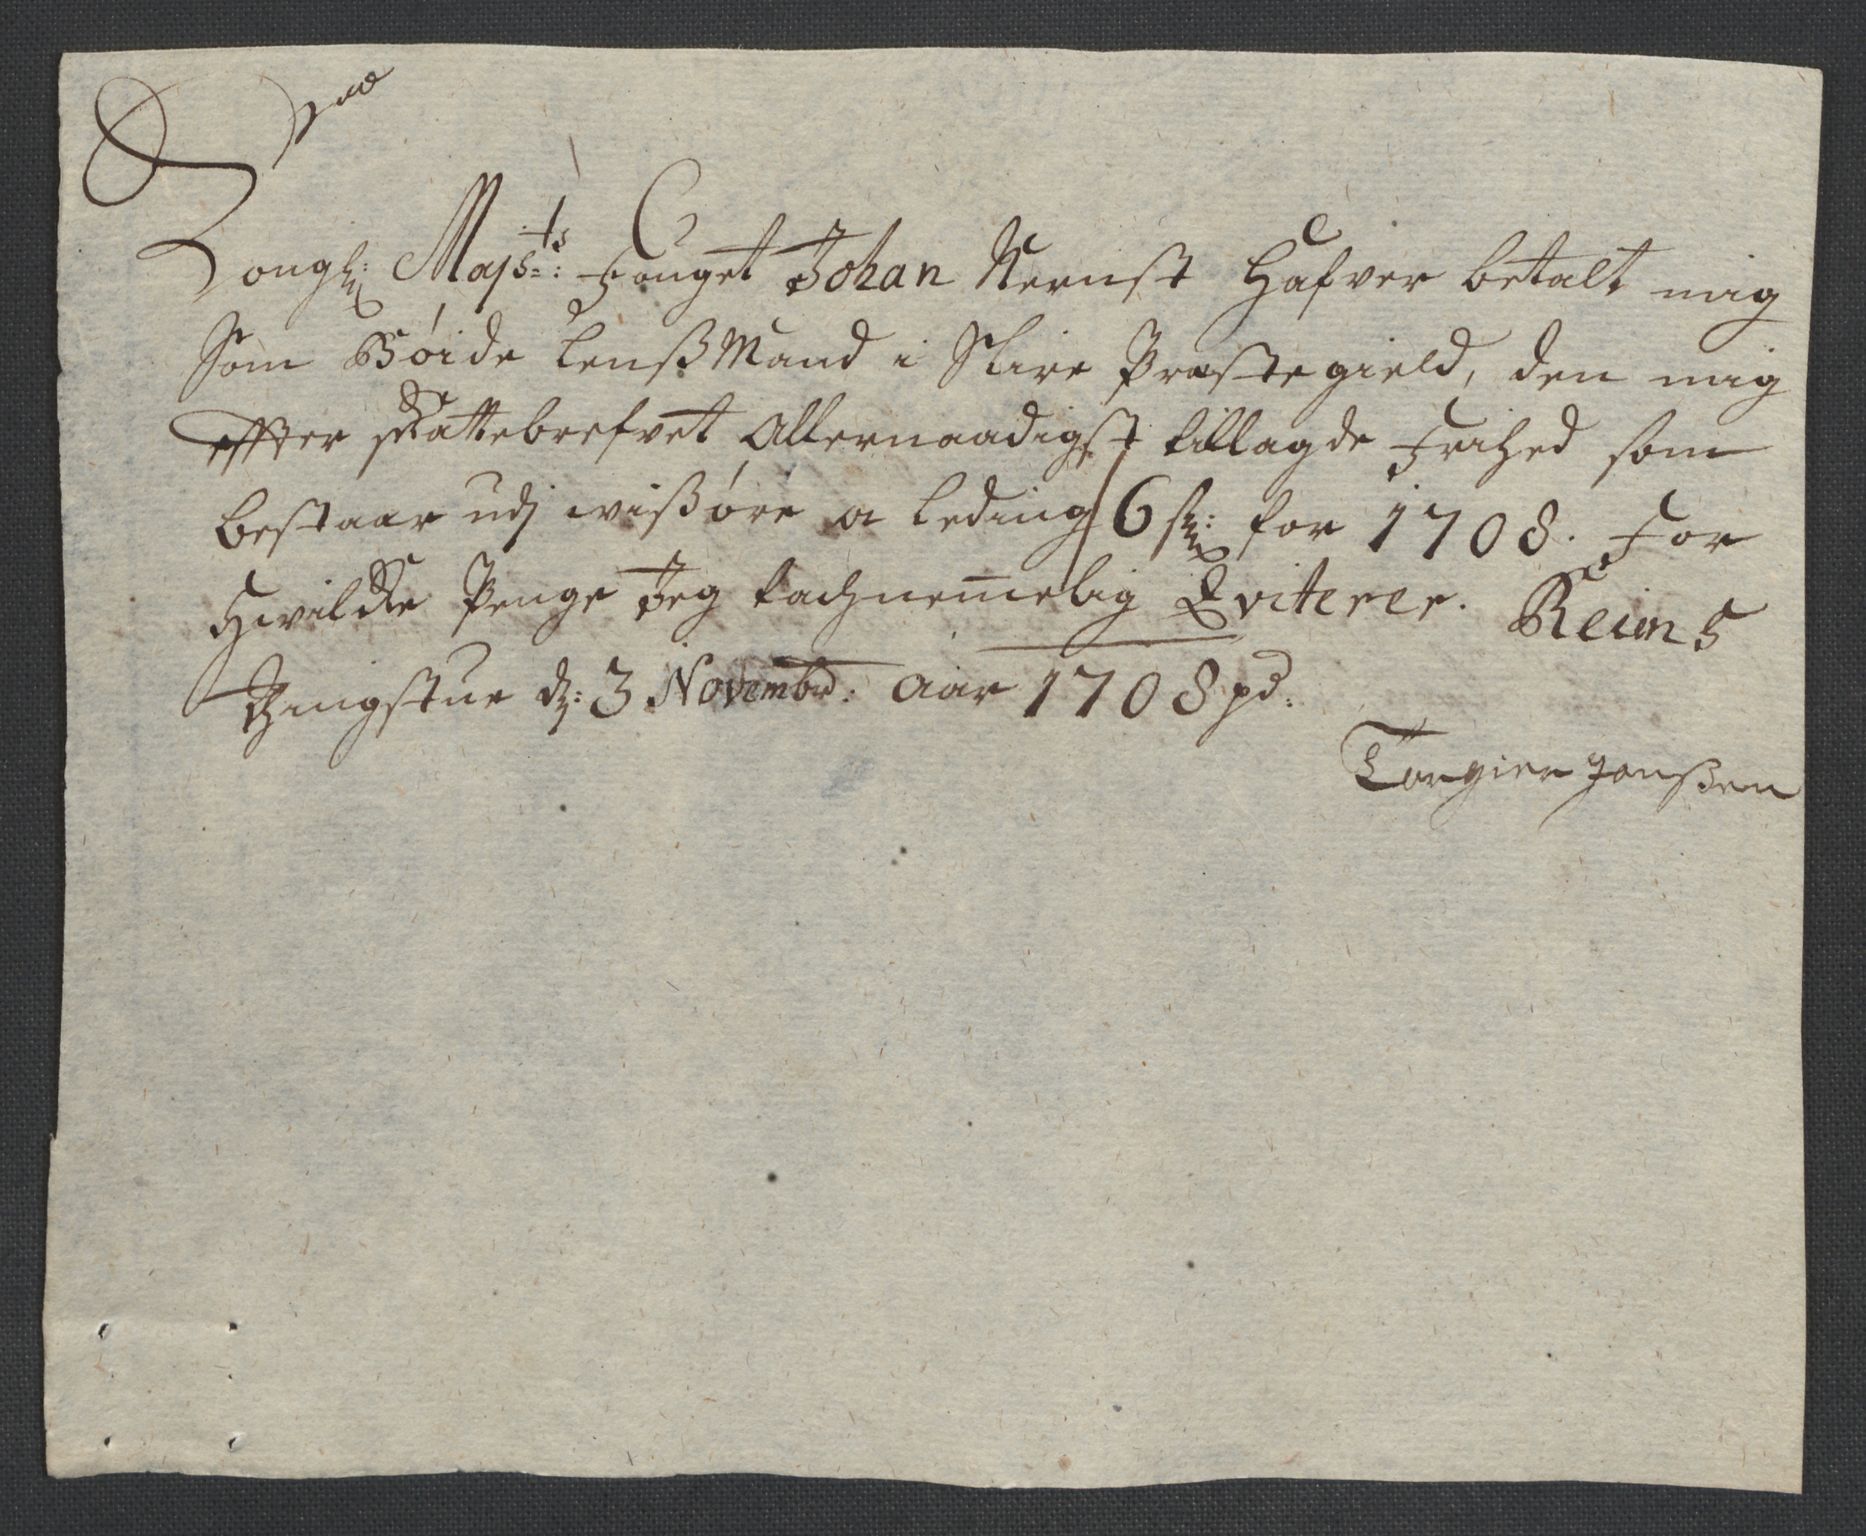 Kongl: Majsts: Fouget Johan Nernst Hafver betalt mig
Som Bøide LenßMand i Slire Præstegield, den mig
effter Skattebrefvet Allernaadigst tillagde Frihed som
bestaar udj wißøre a leding 6 sk: for 1708. For
Hvilcke Penge Jeg tachnemelig Qviterer. Reims
Tingstue d: 3 Novembr: Aar 1708
Torgier Jonßen